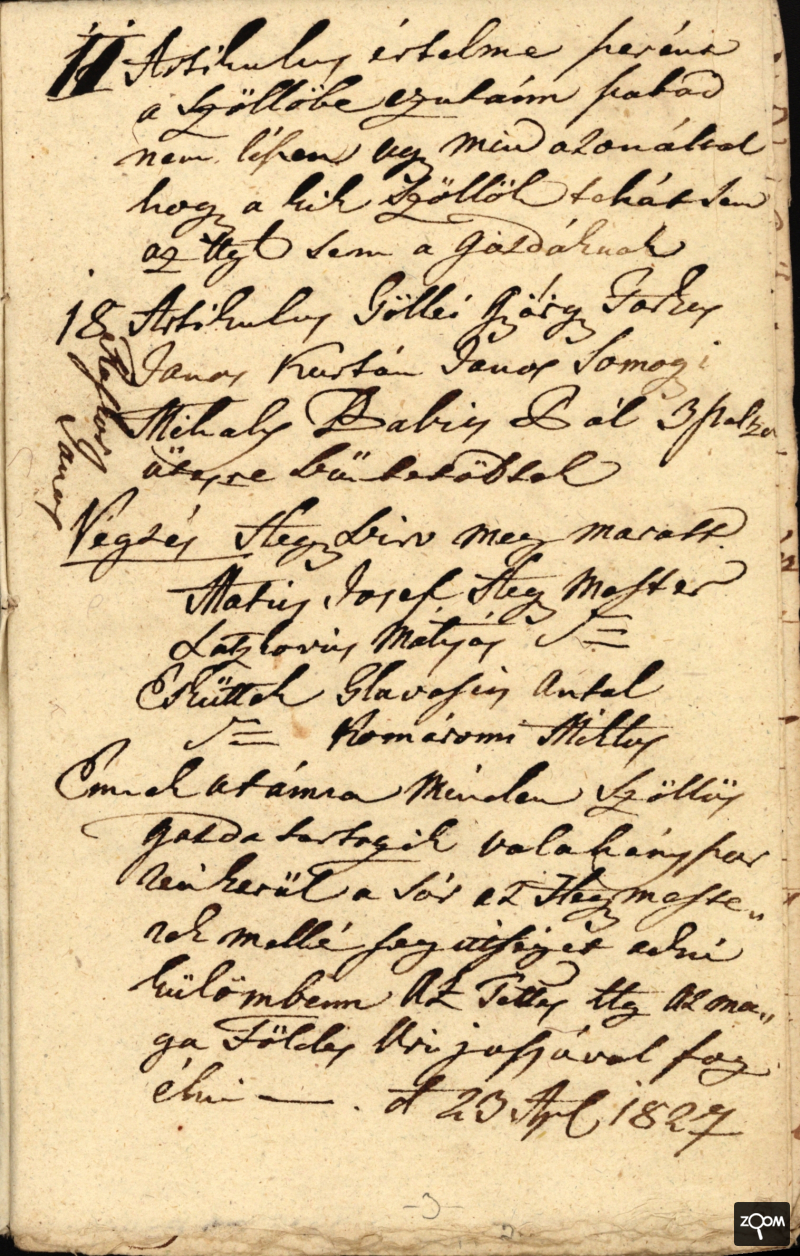 11 Artikulus értelme szerént
a Szöllőbe ezutánn szabad
nem lészen ugy mind azonáltal
hogy a kik Szöllök tehát sem
az Ttgl sem a Gazdáknak
18 Artikulus Göllei György Farkas
Janos Kurtán Janos Somogi
Mihaly Babits Pál 3 paltza
ütésre büntetödtek
Janos
Végzés Hegy biro meg maratt
Matis Josef Hegy Mester
Latzkovits Mátyás
Esküttek Glavosits Antal
Komáromi Miklos
Ennek utánna Minden Szöllös
gazda tartozik valahányszor
reá kerül a sór az Hegymeste„
rek mellé segittséget adni
külömbenn Az Tettes Ttg az ma„
ga Földes Uri jussával fog
élni — . d 23 Apl 1827
-3-
ZOOM